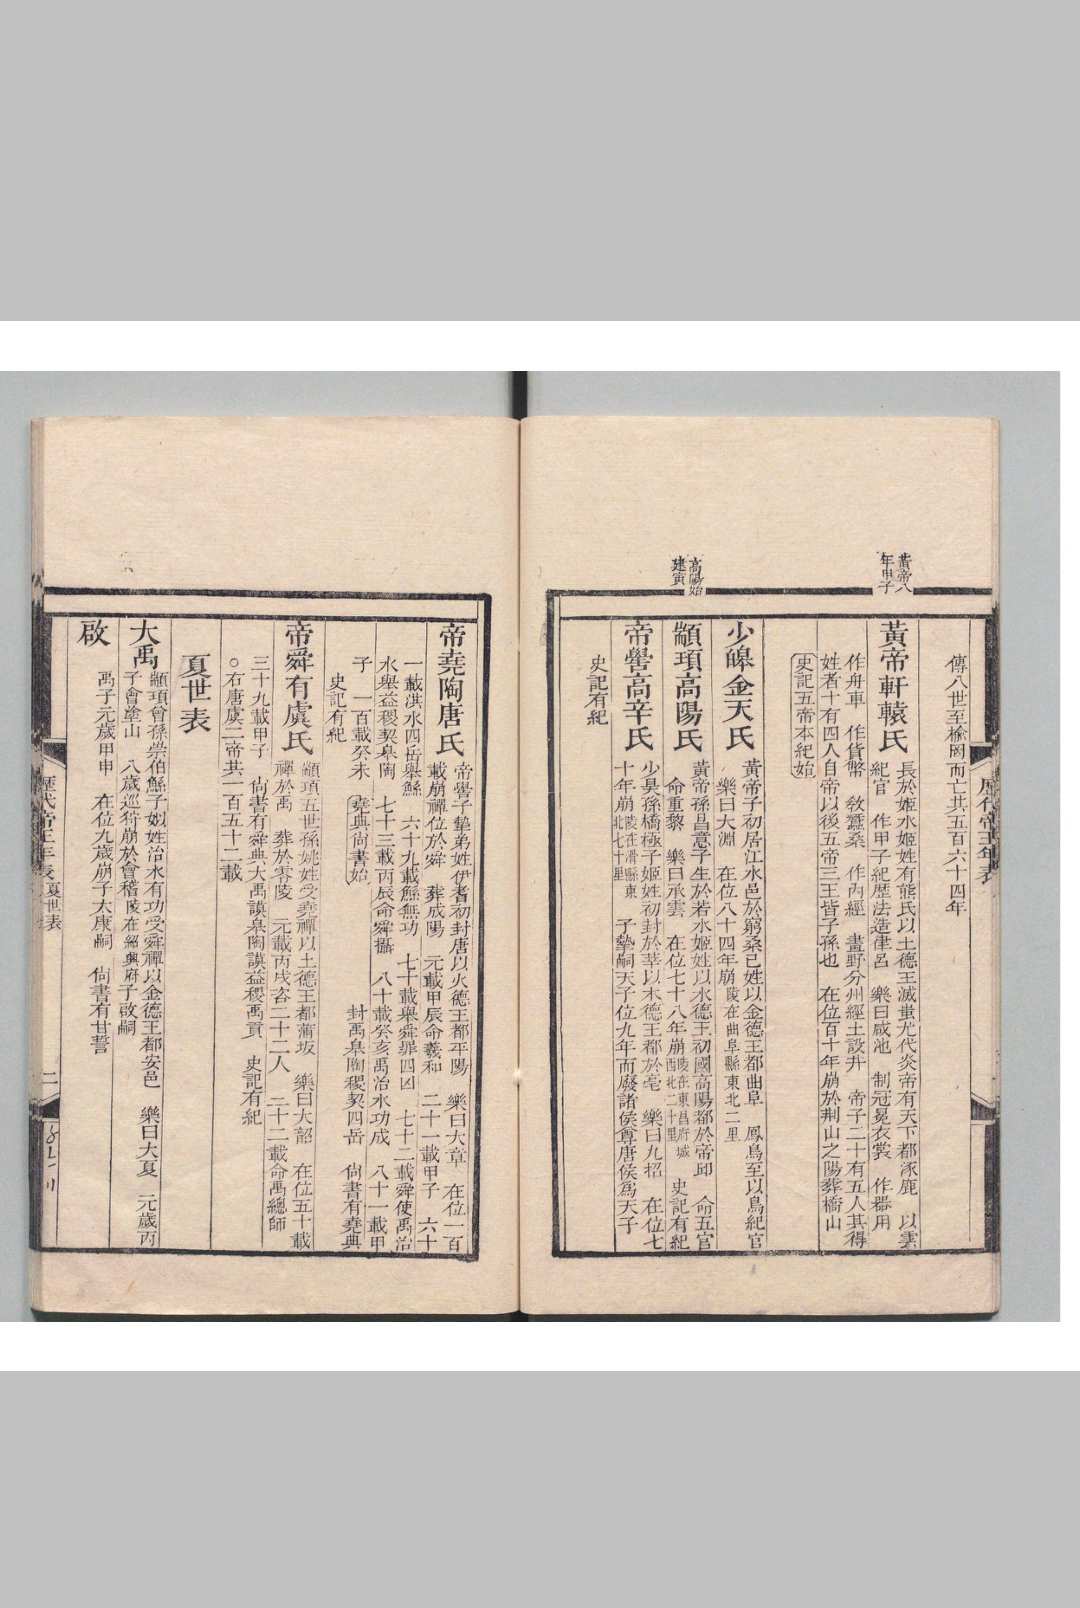 傳八世至榆罔而亡共五百六十四年
黃帝八
年甲子
黃帝軒轅氏
長於姬水姬姓有熊氏以土德王滅蚩尤代炎帝有天下都涿鹿 以雲
紀官 作甲子紀歷法造律呂 樂曰咸池 制冠冕衣裳 作器用
作舟車 作貨幣 敎蠶桑 作內經 畫野分州經土設井 帝子二十有五人其得
姓者十有四人自帝以後五帝三王皆子孫也 在位百十年崩於荆山之陽葬橋山
史記五帝本紀始
少皞金天氏
黃帝子初居江水邑於窮桑己姓以金德王都曲阜 鳳鳥至以鳥紀官
樂曰大淵 在位八十四年崩陵在曲阜縣東北二里
高陽始
建寅
顓頊高陽氏
黃帝孫昌意子生於若水姬姓以水德王初國高陽都於帝邱 命五官
命重黎 樂曰承雲 在位七十八年崩陵在東昌府城西北二十里 史記有紀
帝嚳高辛氏
少昊孫橋極子姬姓初封於莘以木德王都於亳 樂曰九招 在位七
十年崩陵在滑縣東北七十里 子摯嗣天子位九年而廢諸侯尊唐侯爲天子
史記有紀
歷代帝王年表
帝堯陶唐氏
帝嚳子摯弟姓伊耆初封唐以火德王都平陽 樂曰大章 在位一百
載崩禪位於舜 葬成陽 元載甲辰命羲和 二十一載甲子 六十
一載洪水四岳舉鯀 六十九載鯀無功 七十載舉舜罪四凶 七十二載舜使禹治
水舉益稷契皋陶 七十三載丙辰命舜攝 八十載癸亥禹治水功成 八十一載甲
子 一百載癸未 堯典尙書始 封禹皋陶稷契四岳 尙書有堯典
史記有紀
帝舜有虞氏
顓頊五世孫姚姓受堯禪以土德王都蒲坂 樂曰大韶 在位五十載
禪於禹 葬於零陵 元載丙戌咨二十二人 三十二載命禹總師
三十九載甲子 尙書有舜典大禹謨皋陶謨益稷禹貢 史記有紀
○有唐虞二帝共一百五十二載
夏世表
大禹
顓頊曾孫崇伯鯀子姒姓治水有功受舜禪以金德王都安邑 樂曰大夏 元歲丙
子會塗山 八歲巡狩崩於會稽陵在紹興府子啟嗣
啟
禹子元歲甲申 在位九歲崩子太康嗣 尙書有甘誓
歷代帝王年表 夏世表
二